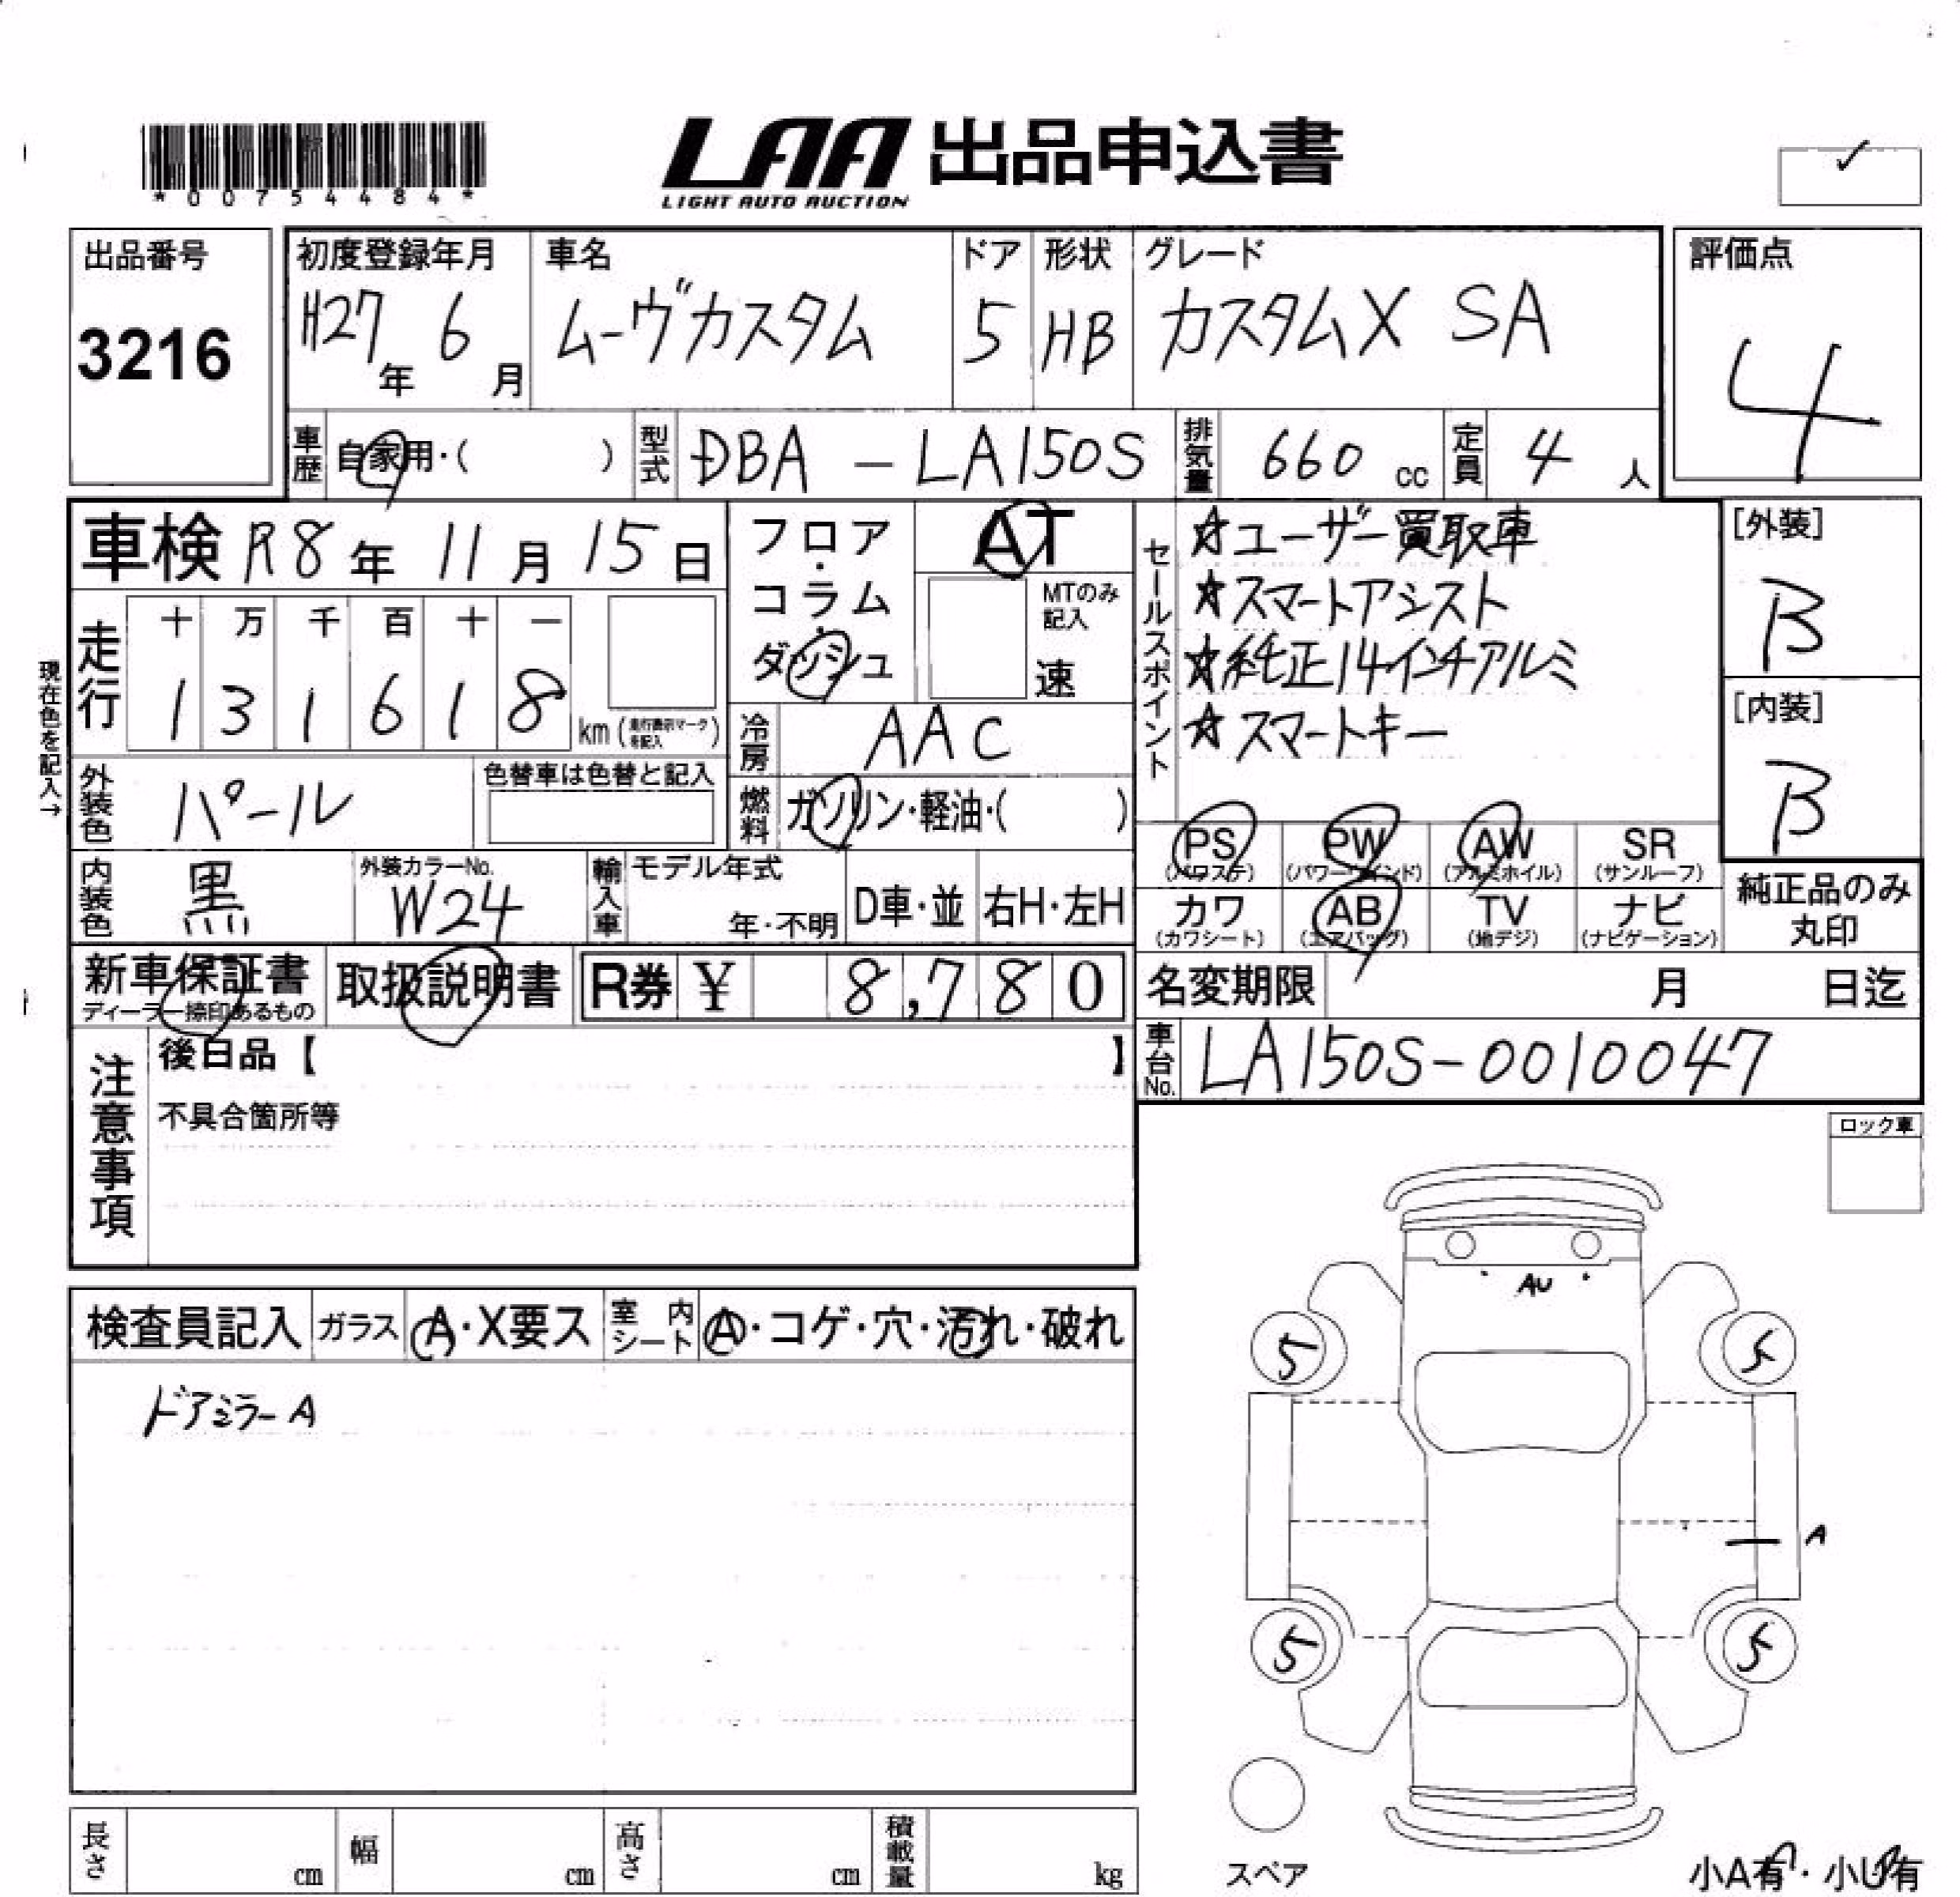 *00754484*
LAA 出品申込書
LIGHT AUTO AUCTION
✓
出品番号
3216
初度登録年月
H27年 6月
車名
ムーヴカスタム
ドア
5
形状
HB
グレード
カスタムX SA
評価点
4
車歴 自家用・( )
型式 DBA - LA150S
排気量 660 cc
定員 4 人
車検 R8年 11月 15日
現在色を記入→
走行
十 万 千 百 十 一
1 3 1 6 1 8
km (走行表示マークを記入)
フロア・コラム・ダッシュ
AT
MTのみ記入
速
冷房 AAC
燃料 ガソリン・軽油・( )
セールスポイント
☆ユーザー買取車
☆スマートアシスト
☆純正14インチアルミ
☆スマートキー
[外装]
B
[内装]
B
外装色 パール
色替車は色替と記入
内装色 黒
外装カラーNo.
W24
輸入車
モデル年式
年・不明
D車・並
右H・左H
PS (パワステ)
PW (パワーウインド)
AW (アルミホイル)
SR (サンルーフ)
カワ (カワシート)
AB (エアバッグ)
TV (地デジ)
ナビ (ナビゲーション)
純正品のみ丸印
新車保証書
ディーラー捺印あるもの
取扱説明書
R券 ¥ 8,780
名変期限 月 日迄
車台No. LA150S-0010047
注意事項
後日品【 】
不具合箇所等
ロック車
検査員記入
ガラス A・X要ス
室内シート A・コゲ・穴・汚れ・破れ
ドアミラーA
AU
5
5
A
5
5
スペア
小A有・小U有
長さ cm
幅 cm
高さ cm
積載量 kg